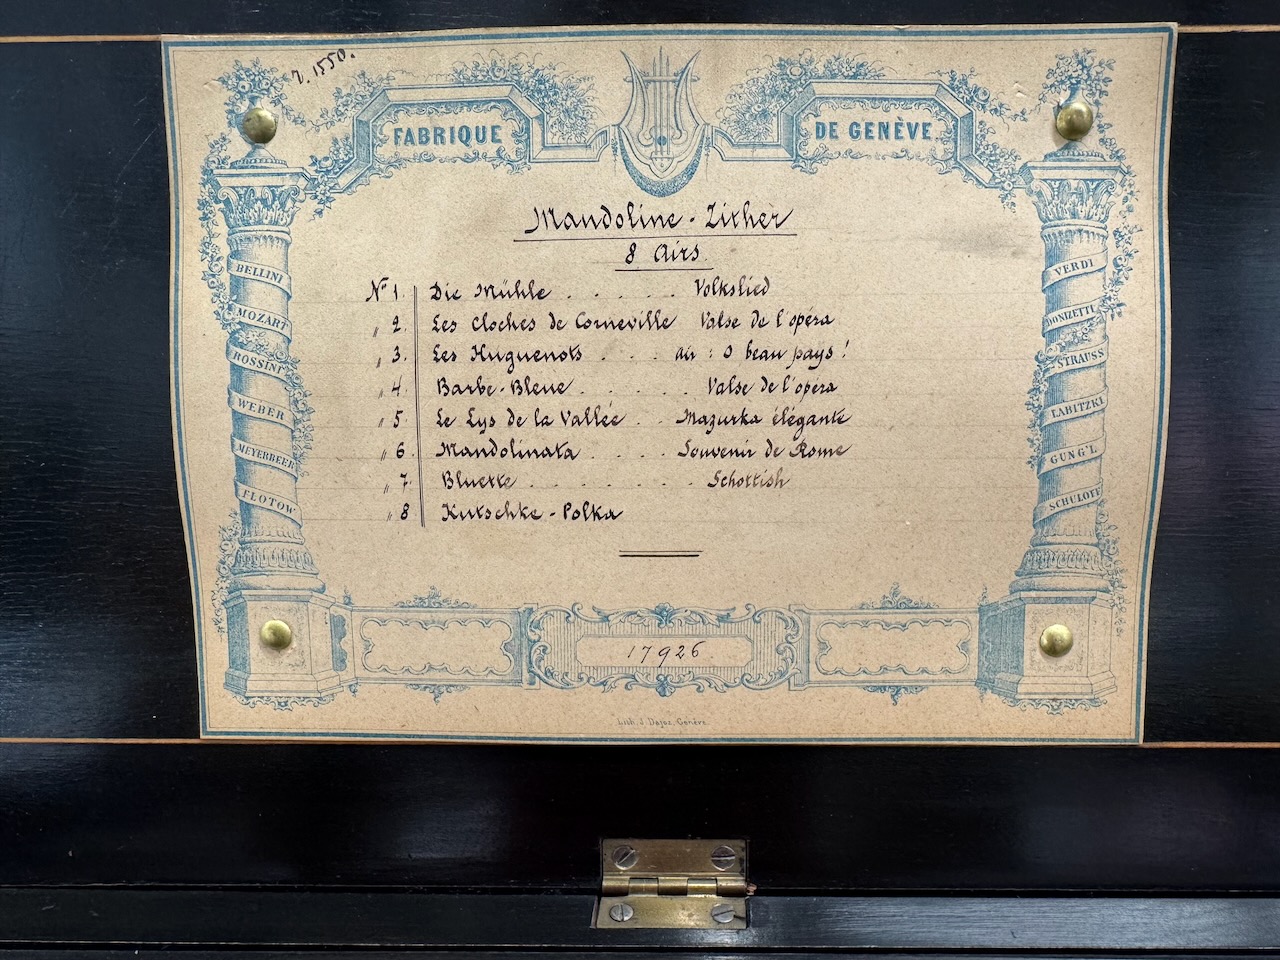 1550.
FABRIQUE
DE GENÈVE
Mandoline-Zither
8 Airs.
Nº 1. Die Mühle . . . . . Volkslied
" 2. Les Cloches de Corneville Valse de l'opéra
" 3. Les Huguenots . . . air : O beau pays !
" 4. Barbe-Bleue . . . . Valse de l'opéra
" 5 Le Lys de la Vallée . . Mazurka élégante
" 6 Mandolinata . . . . Souvenir de Rome
" 7. Bluette . . . . . . . Schottish
" 8 Kutschke-Polka
BELLINI
MOZART
ROSSINI
WEBER
MEYERBEER
FLOTOW
VERDI
DONIZETTI
STRAUSS
LABITZKI
GUNG'L
SCHULOFF
17926
Lith. J. Dajoz, Genève.